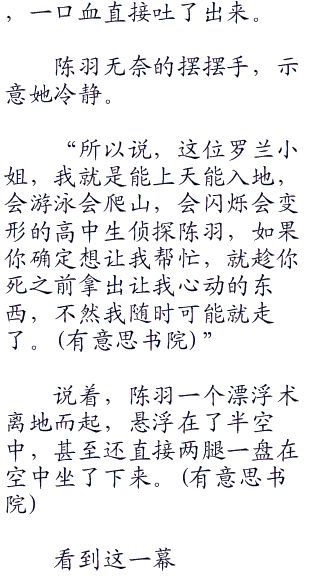 ，一口血直接吐了出来。
陈羽无奈的摆摆手，示
意她冷静。
“所以说，这位罗兰小
姐，我就是能上天能入地，
会游泳会爬山，会闪烁会变
形的高中生侦探陈羽，如果
你确定想让我帮忙，就趁你
死之前拿出让我心动的东
西，不然我随时可能就走
了。(有意思书院)”
说着，陈羽一个漂浮术
离地而起，悬浮在了半空
中，甚至还直接两腿一盘在
空中坐了下来。(有意思书
院)
看到这一幕